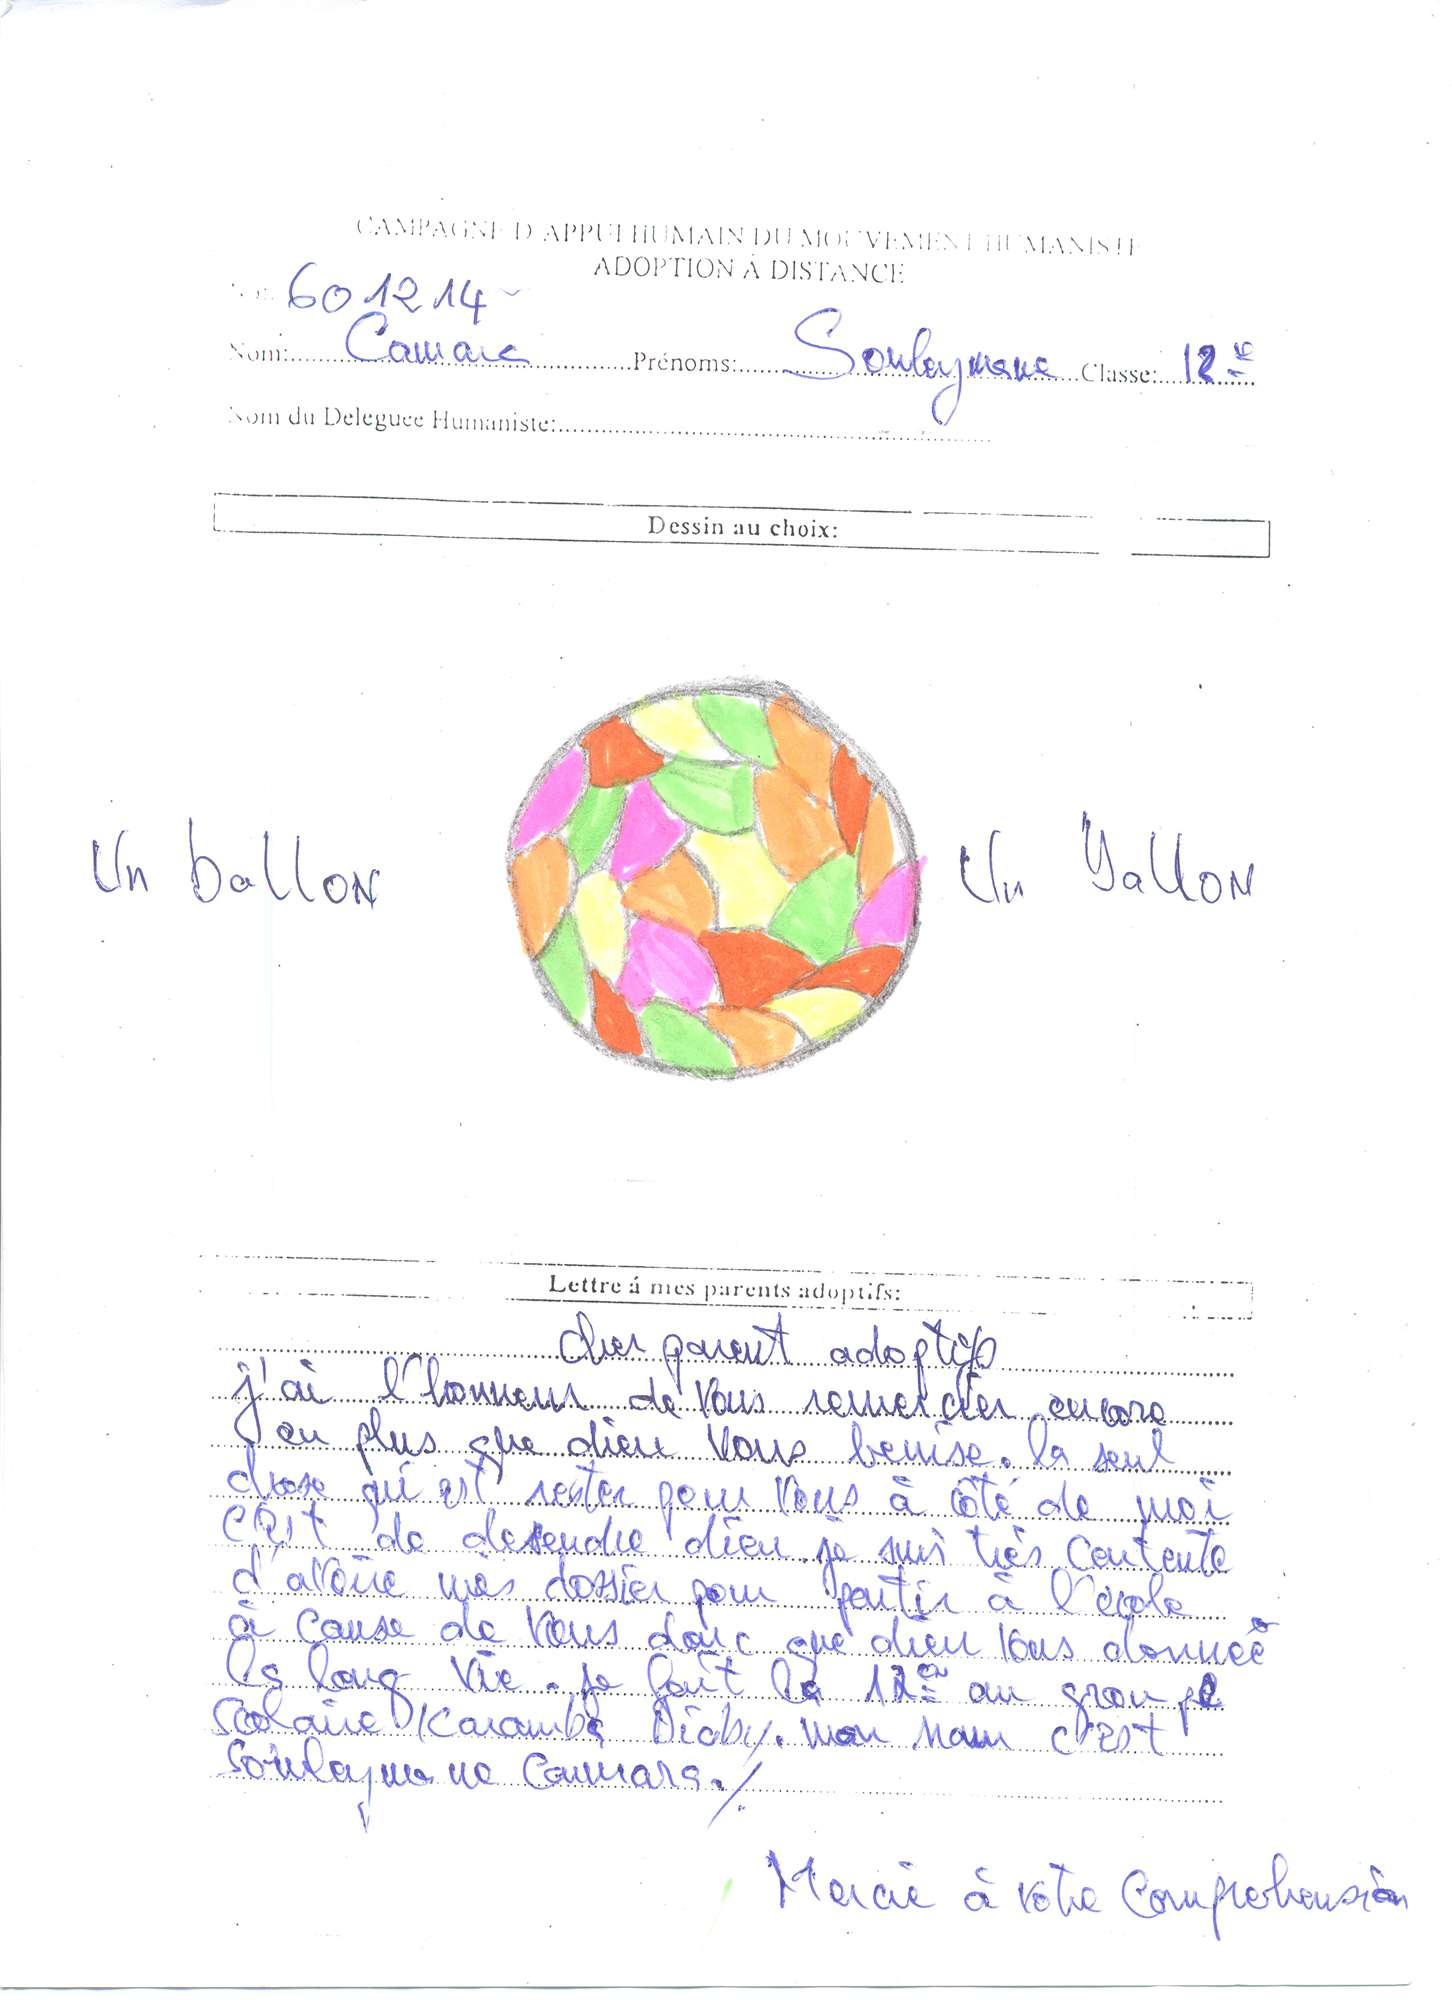 CAMPAGNE D'APPUI HUMAIN DU MOUVEMENT HUMANISTE
ADOPTION Á DISTANCE
601214
Nom: Camara Prénoms: Souleymane Classe: 12e
Nom du Deleguee Humaniste:
Dessin au choix:
Un ballon
Un ballon
Lettre á mes parents adoptifs:
cher parent adoptifs
j'ai l'honneur de vous remercier encore
en plus que dieu vous benise. la seul
chose qui est rester pour vous à côté de moi
c'est de demendre dieu. je suis très contente
d'avoire mes dossier pour partir à l'école
à cause de vous donc que dieu vous donneé
la long vie. je fait la 12e au groupe
scolaire Karamba Diaby. mon nom c'est
Souleymane Camara./
Mercie à votre Comprehension